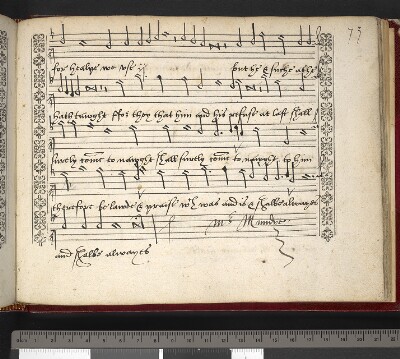 73
for healpe we use ij but he & suche as he
hath tawght ffor they that him and his refuse at last shall
surely come to nawght shall surely come to nawght to him
therefore be lawde & praise wch was and is & shalbe alwayes
and shalbe alwayes
mr Mundye